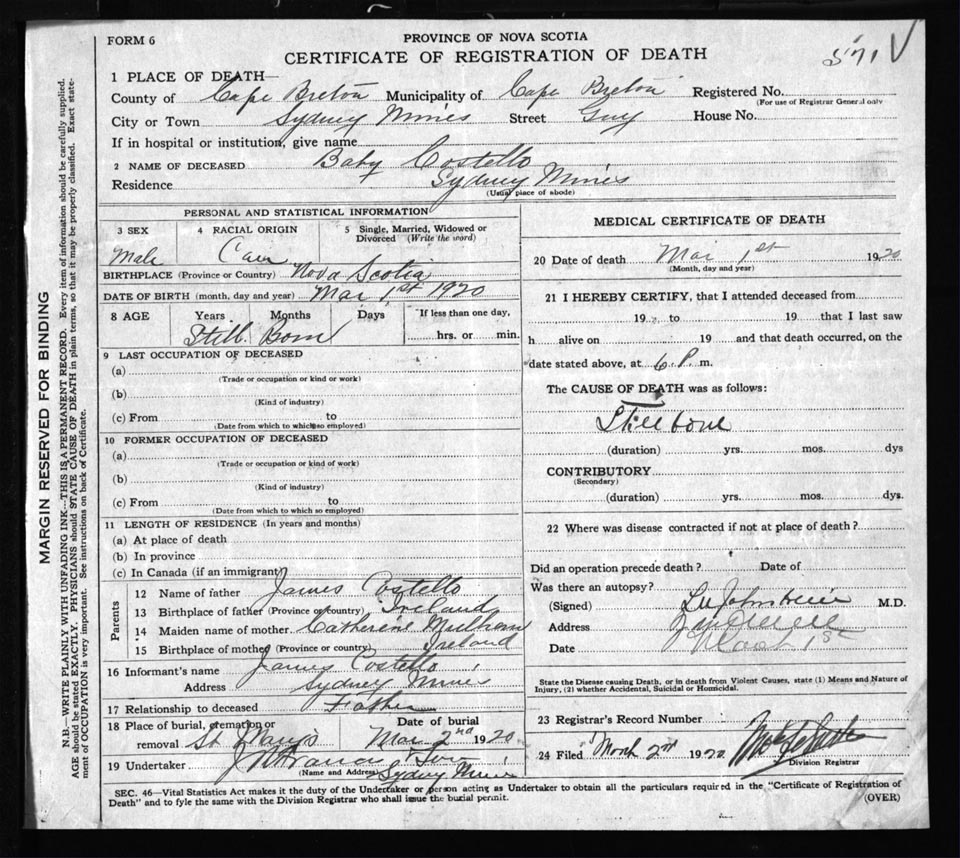 FORM 6
PROVINCE OF NOVA SCOTIA
CERTIFICATE OF REGISTRATION OF DEATH
571
1 PLACE OF DEATH—
County of Cape Breton Municipality of Cape Breton Registered No.
(For use of Registrar General only
City or Town Sydney Mines Street Guy House No.
If in hospital or institution, give name
2 NAME OF DECEASED Baby Costello
Residence Sydney Mines
(Usual place of abode)
PERSONAL AND STATISTICAL INFORMATION
3 SEX 4 RACIAL ORIGIN 5 Single, Married, Widowed or
Divorced (Write the word)
Male Can
BIRTHPLACE (Province or Country) Nova Scotia
DATE OF BIRTH (month, day and year) Mar 1st 1920
8 AGE Years Months Days If less than one day,
Still Born hrs. or min.
9 LAST OCCUPATION OF DECEASED
(a)
(Trade or occupation or kind or work)
(b)
(Kind of industry)
(c) From to
(Date from which to which so employed)
10 FORMER OCCUPATION OF DECEASED
(a)
(Trade or occupation or kind of work)
(b)
(Kind of industry)
(c) From to
(Date from which to which so employed)
11 LENGTH OF RESIDENCE (In years and months)
(a) At place of death
(b) In province
(c) In Canada (if an immigrant)
Parents
12 Name of father James Costello
13 Birthplace of father (Province or country) Ireland
14 Maiden name of mother Catherine
15 Birthplace of mother (Province or country) Ireland
16 Informant's name James Costello
Address Sydney Mines
17 Relationship to deceased Father
18 Place of burial, cremation or Date of burial
removal St Marys Mar 2nd 1920
19 Undertaker
(Name and Address) Sydney Mines
MEDICAL CERTIFICATE OF DEATH
20 Date of death Mar 1st 1920
(Month, day and year)
21 I HEREBY CERTIFY, that I attended deceased from
19 to 19 that I last saw
h alive on 19 and that death occurred, on the
date stated above, at 6 P. m.
The CAUSE OF DEATH was as follows:
Stillborn
(duration) yrs. mos. dys
CONTRIBUTORY
(Secondary)
(duration) yrs. mos. dys.
22 Where was disease contracted if not at place of death?
Did an operation precede death? Date of
Was there an autopsy?
(Signed) M.D.
Address
Date March 1st
State the Disease causing Death, or in death from Violent Causes, state (1) Means and Nature of
Injury, (2) whether Accidental, Suicidal or Homicidal.
23 Registrar's Record Number
24 Filed March 2nd 1920
Division Registrar
SEC. 46—Vital Statistics Act makes it the duty of the Undertaker or person acting as Undertaker to obtain all the particulars required in the "Certificate of Registration of
Death" and to fyle the same with the Division Registrar who shall issue the burial permit.
(OVER)
MARGIN RESERVED FOR BINDING
N.B.—WRITE PLAINLY WITH UNFADING INK—THIS IS A PERMANENT RECORD. Every item of information should be carefully supplied.
AGE should be stated EXACTLY. PHYSICIANS should STATE CAUSE OF DEATH in plain terms, so that it may be properly classified. Exact state-
ment of OCCUPATION is very important. See instructions on back of Certificate.